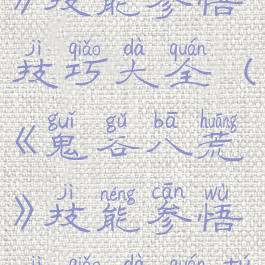 》技能参悟
jì qiǎo dà quán
技巧大全（
guǐ gǔ bā huāng
《鬼谷八荒
jì néng cān wù
》技能参悟
jì qiǎo dà quán